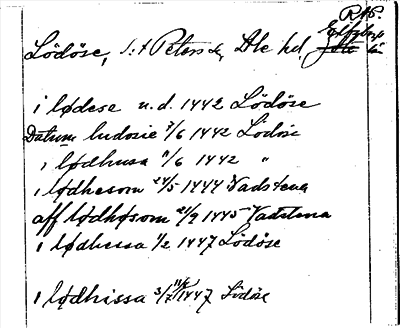 RAp.
Lödöse, S:t Peters sn, Ale hd, Elfsb. län
i lødese u.d. 1442 Lödöse
Datum ludosie 7/6 1442 Lödöse
i lødhusa 11/6 1442 "
i lødhesom 24/5 1444 Vadstena
aff lødhøsom 21/9 1445 Vadstena
i lødhessa 1/2 1447 Lödöse
i lødhissa 3/7 1447 Lödöse